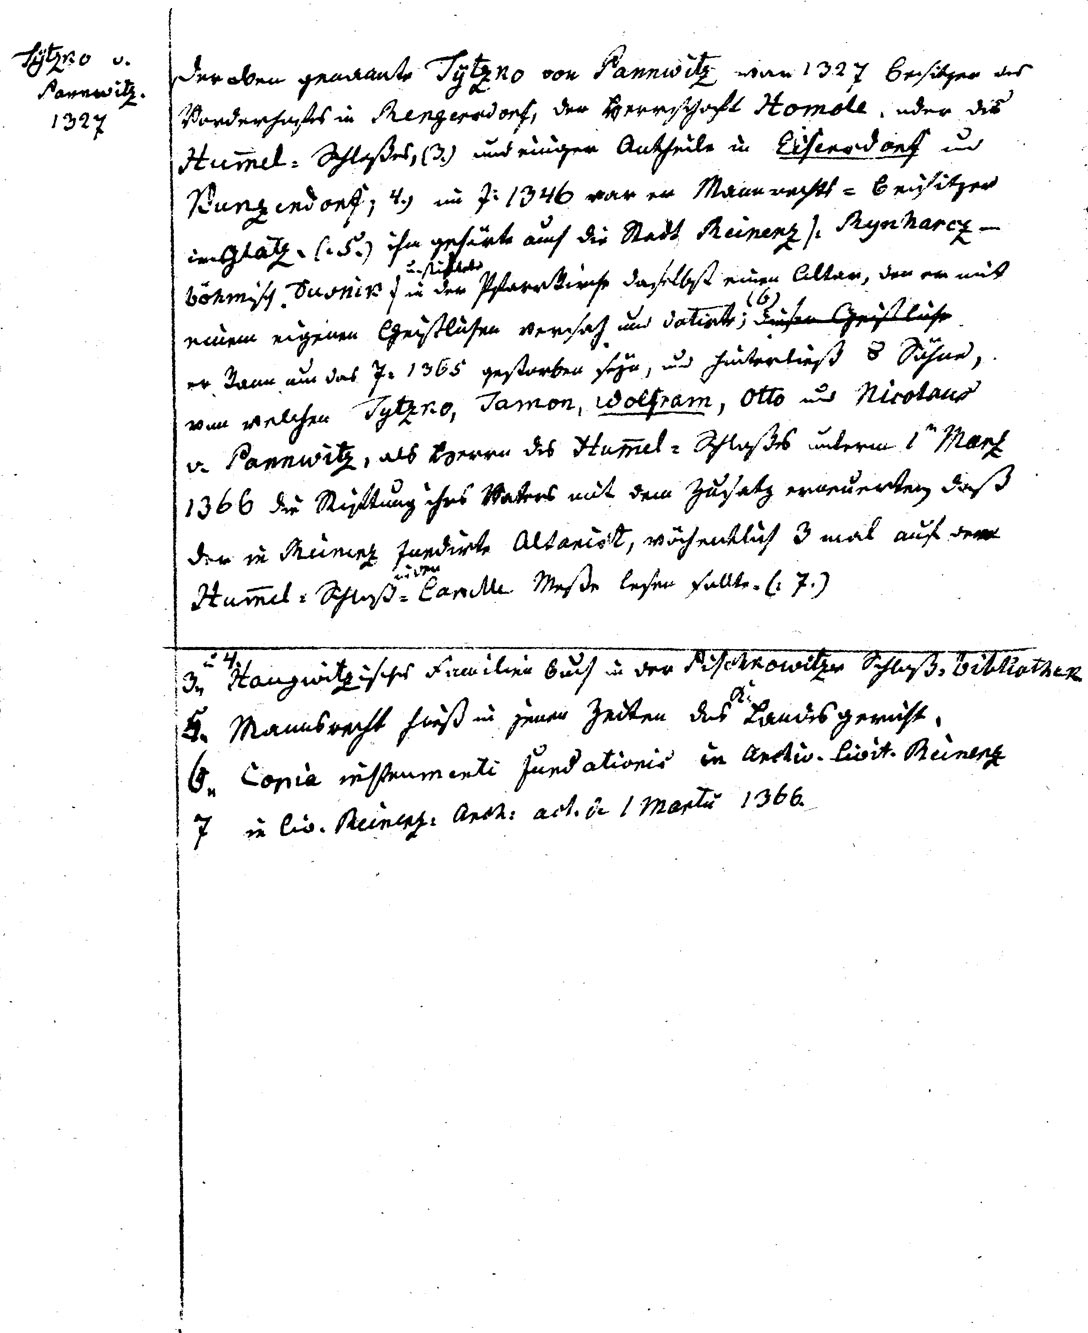 Tytzko v.
Pannwitz.
1327
Der oben genannte Tytzko von Pannwitz war 1327 Besitzer des
Vorderhofes in Rengersdorf, der Herrschaft Homole, oder des
Hum̅el = Schloßes, (3.) und einiger Antheile in Eisersdorf und
Kunzendorf; 4.) im J: 1346 war er Mannrechts = Beisitzer
in Glatz. (: 5.) ihm gehörte auch die Stadt Reinerz /: Rynharcz –
böhmisch Dusnik / u. stiftete in der Pfarrkirche daselbst einen Altar, den er mit
einem eigenen Geistlichen versah und dotirte; (6) dieser Geistliche
er kann um das J: 1365 gestorben seyn, und hinterließ 8 Söhne,
von welchen Tytzko, Jamon, Wolfram, Otto und Nicolaus
v. Pannwitz, als Herrn des Hum̅el = Schloßes unterm 1n Merz
1366 die Stiftung ihres Vaters mit dem Zusatz erneuerten, daß
der in Reinerz fundirte Altarist, wöchentlich 3 mal auf dem
Hum̅el = Schloß = in der Capelle Meße lesen sollte. (: 7.)
3. u 4. Haugwitzisches Familien Buch in der Pischkowitzer Schloß-Bibliothek
5. Mannsrecht hieß in jenen Zeiten das Landesgericht.
6. Copia instrumenti fundationis in Archiv. Civit. Reinerz
7 in Civ. Reinerz: Arch: act. d. 1 Martii 1366.